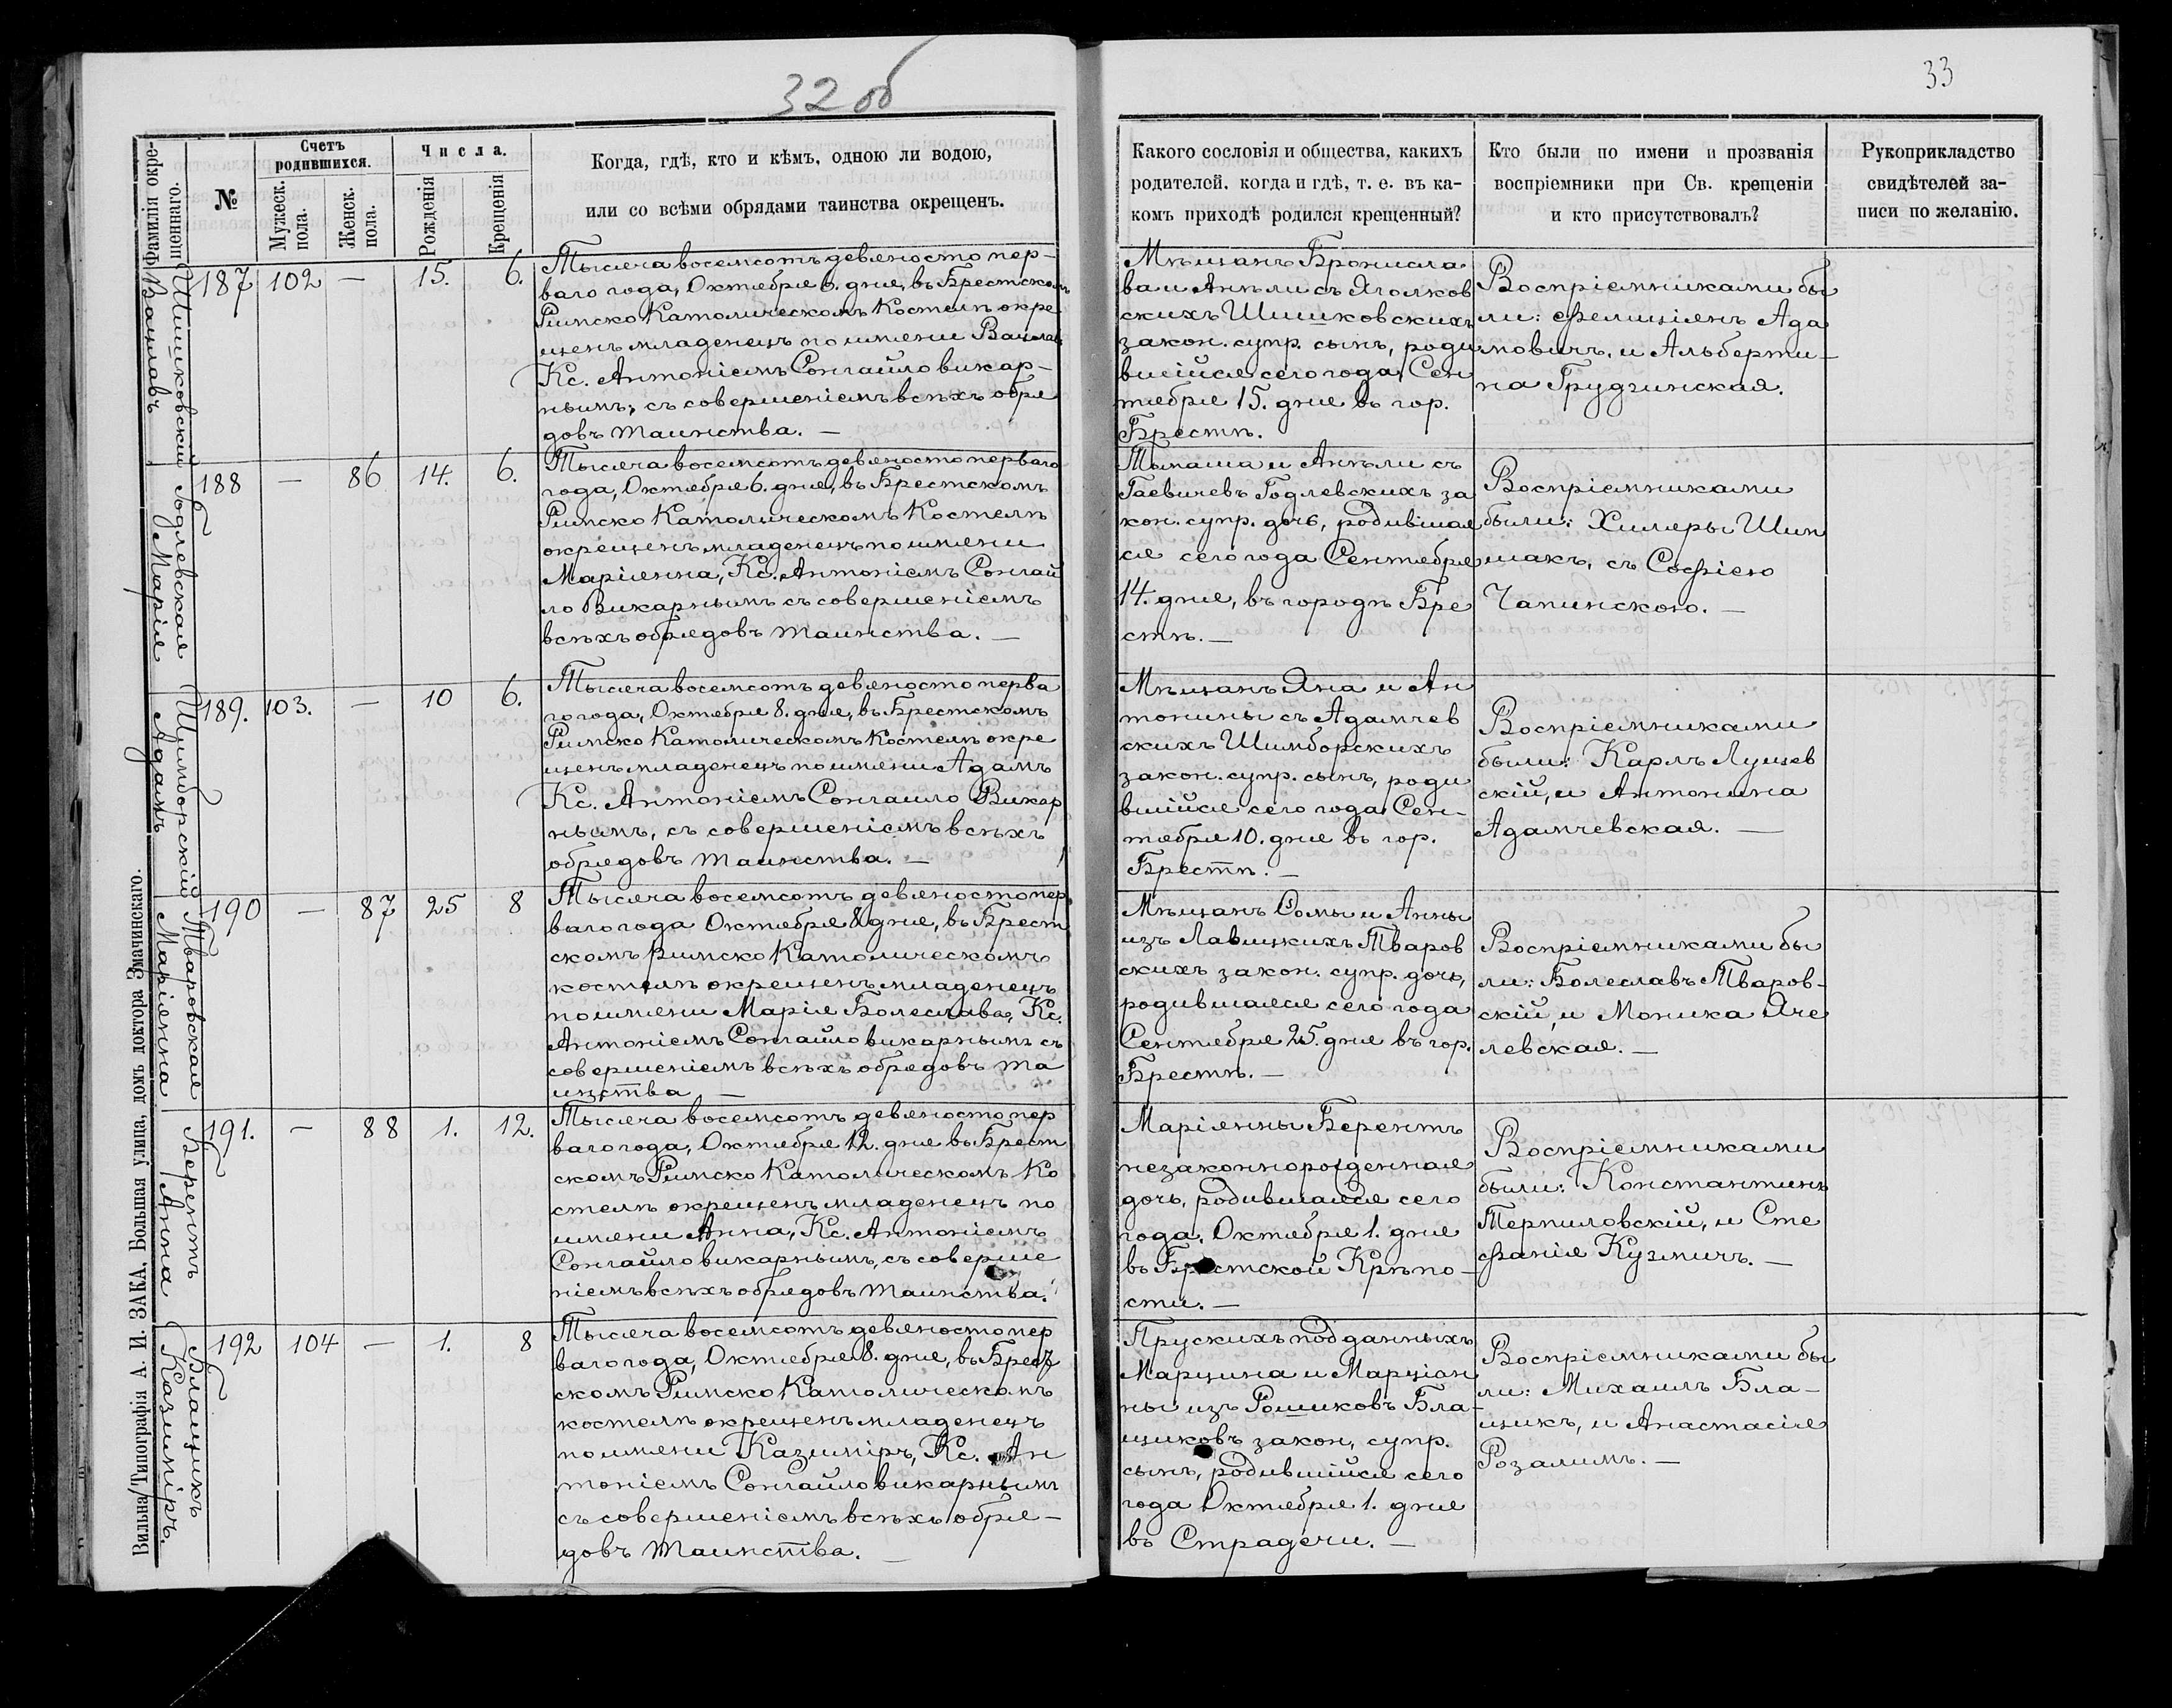 32 об
33
Фамилія окрещеннаго.
№
Счетъ родившихся.
Мужеск. пола.
Женск. пола.
Числа.
Рожденія
Крещенія
Когда, гдѣ, кто и кѣмъ, одною ли водою,
или со всѣми обрядами таинства окрещенъ.
Какого сословія и общества, какихъ
родителей. когда и гдѣ, т. е. въ ка-
комъ приходѣ родился крещенный?
Кто были по имени и прозванія
воспріемники при Св. крещеніи
и кто присутствовалъ?
Рукоприкладство
свидѣтелей за-
писи по желанію.
Шишковскій
Вацлавъ
187 102 — 15. 6.
Тысяча восемсотъ девяносто пер-
ваго года, Октября 6. дня, въ Брестскомъ
Римско Католическомъ Костелѣ окре
щенъ младенецъ по имени Вацлавъ
Кс. Антоніемъ Сонгайло викар-
нымъ, съ совершеніемъ всѣхъ обря
довъ таинства. —
Мѣщанъ Бронисла
ва и Анѣли съ Яголков
скихъ Шишковскихъ
закон. супр. сынъ, роди
вшійся сего года Сен
тября 15. дня въ гор.
Брестѣ.
Воспріемниками бы
ли: Фелиціянъ Ада
мовичъ, и Альберти-
на Грудзинская.
Годлевская
Марія
188 — 86 14. 6.
Тысяча восемсотъ девяносто перваго
года, Октября 6. дня, въ Брестскомъ
Римско Католическомъ Костелѣ
окрещенъ младенецъ по имени
Маріянна, Кс. Антоніемъ Сонгай
ло Викарнымъ съ совершеніемъ
всѣхъ обрядовъ таинства. —
Томаша и Анѣли съ
Гаевичевъ Годлевскихъ за
кон. супр. дочь, родившая
ся сего года Сентября
14. дня, въ городѣ Бре
стѣ. —
Воспріемниками
были: Хиляры Шим
шакъ, съ Софіею
Чапинскою. —
Шимборскій
Адамъ
189. 103. — 10 6.
Тысяча восемсотъ девяносто перва
го года, Октября 8. дня, въ Брестскомъ
Римско Католическомъ Костелѣ окре
щенъ младенецъ по имени Адамъ
Кс. Антоніемъ Сонгаило Викар
нымъ, съ совершеніемъ всѣхъ
обрядовъ таинства. —
Мѣщанъ Яна и Ан
тонины съ Адамчев
скихъ Шимборскихъ
закон. супр. сынъ, роди
вшійся сего года Сен-
тября 10. дня въ гор.
Брестѣ. —
Воспріемниками
были: Карлъ Лущев
скій, и Антонина
Адамчевская. —
Тваровская
Маріянна
190 — 87 25 8
Тысяча восемсотъ девяносто пер
ваго года Октября 8 дня, въ Брест
скомъ римско Католическомъ
костелѣ окрещенъ младенецъ
по имени Марія Болеслава, Кс.
Антоніемъ Сонгайло викарнымъ съ
совершеніемъ всѣхъ обрядовъ та
инства —
Мѣщанъ Ѳомы и Анны
изъ Лавицкихъ Тваров
скихъ закон. супр. дочь,
родившаяся сего года
Сентября 25. дня въ гор.
Брестѣ. —
Воспріемниками бы
ли: Болеславъ Тваров-
скій, и Моника Яче
левская. —
Берентъ
Анна
191. — 88 1. 12.
Тысяча восемсотъ девяносто пер
ваго года, Октября 12. дня въ Брест
скомъ Римско Католическомъ Ко
стелѣ окрещенъ младенецъ по
имени Анна, Кс. Антоніемъ
Сонгайло викарнымъ, съ соверше
ніемъ всѣхъ обрядовъ таинства.
Маріянны Берентъ
незаконнорожденная
дочь, родившаяся сего
года, Октября 1. дня
въ Брестской Крѣпо-
сти. —
Воспріемниками
были: Константинъ
Терпиловскій, и Сте
фанія Кузмичъ. —
Блащикъ
Казимиръ.
192 104 — 1. 8
Тысяча восемсотъ девяносто пер
ваго года, Октября 8. дня, въ Брест
скомъ Римско Католическомъ
костелѣ окрещенъ младенецъ
по имени Казиміръ, Кс. Ан
тоніемъ Сонгайло викарнымъ
съ совершеніемъ всѣхъ обря-
довъ таинства. —
Прускихъ подданныхъ
Марцина и Марціан
ны изъ Рошиковъ Бла-
щиковъ закон, супр.
сынъ, родившійся сего
года Октября 1. дня
въ Страдечи. —
Воспріемниками бы
ли: Михаилъ Бла-
щикъ, и Анастасія
Розалимъ. —
Вильна/Типографія А. И. ЗАКА, Большая улица, домъ доктора Змачинскаго.